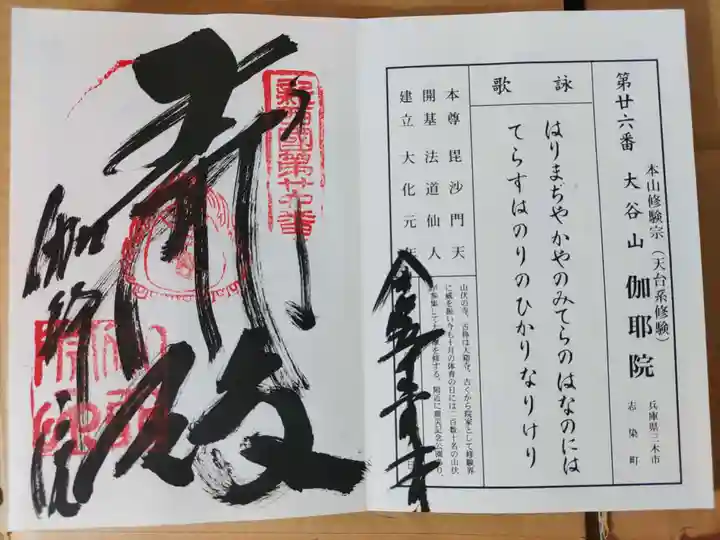 第廿六番 大谷山 伽耶院
本山修験宗（天台系修験）
兵庫県三木市
志染町
詠歌
はりまぢやかやのみてらのはなのには
てらすはのりのひかりなりけり
本尊 毘沙門天
開基 法道仙人
建立 大化元年
山伏の寺。古称は大谿寺。古くから院家として修験界
に威を振い今も十月の体育の日には二百数十名の山伏
が参集して
を修する。附近に震災記念公園あり。
日
新西國第廿六番
殿
伽耶院